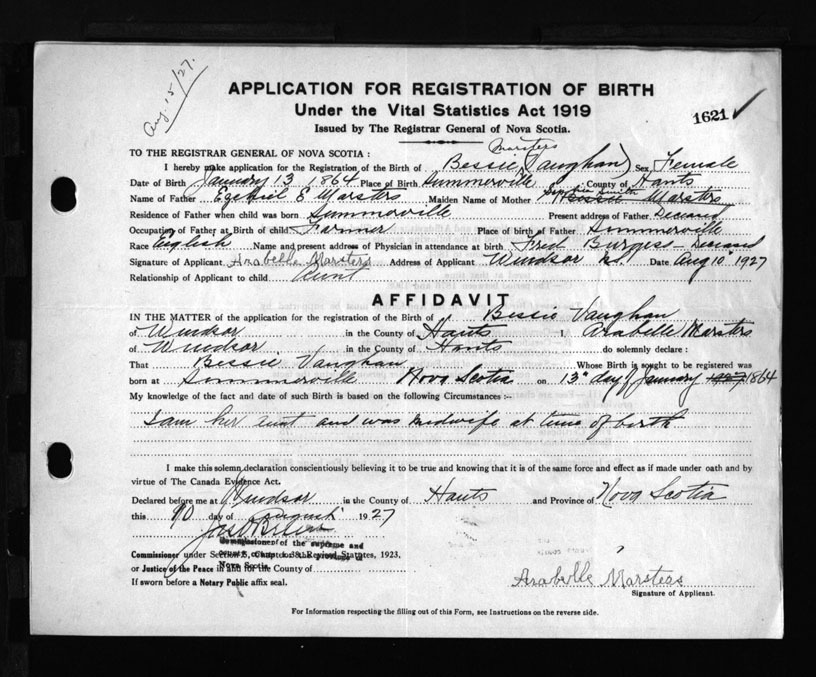 Aug. 15/27.
APPLICATION FOR REGISTRATION OF BIRTH
Under the Vital Statistics Act 1919
1621 ✓
Issued by The Registrar General of Nova Scotia.
Marsters
TO THE REGISTRAR GENERAL OF NOVA SCOTIA :
I hereby make application for the Registration of the Birth of Bessie (Vaughan) Sex Female
Date of Birth January 13 1864 Place of Birth Summerville County of Hants
Name of Father Ezekiel E Marsters Maiden Name of Mother Sophia Smith Marsters
Residence of Father when child was born Summerville Present address of Father Deceased
Occupation of Father at Birth of child Farmer Place of birth of Father Summerville
Race English Name and present address of Physician in attendance at birth Fred Burgess - Deceased
Signature of Applicant Arabelle Marsters Address of Applicant Windsor N.S. Date Aug 10 1927
Relationship of Applicant to child Aunt
AFFIDAVIT
IN THE MATTER of the application for the registration of the Birth of Bessie Vaughan
of Windsor in the County of Hants I, Arabelle Marsters
of Windsor in the County of Hants do solemnly declare :
That Bessie Vaughan Whose Birth is sought to be registered was
born at Summerville Nova Scotia on 13th day of January 1927 1864
My knowledge of the fact and date of such Birth is based on the following Circumstances :-
I am her aunt and was midwife at time of birth
I make this solemn declaration conscientiously believing it to be true and knowing that it is of the same force and effect as if made under oath and by
virtue of The Canada Evidence Act.
Declared before me at Windsor in the County of Hants and Province of Nova Scotia
this 10 day of August 1927
Commissioner of the supreme and
Commissioner under Section 8, Chapter 38, Revised Statutes, 1923,
or Justice of the Peace in and for the County of
Nova Scotia
If sworn before a Notary Public affix seal.
Arabelle Marsters
Signature of Applicant.
For Information respecting the filling out of this Form, see Instructions on the reverse side.